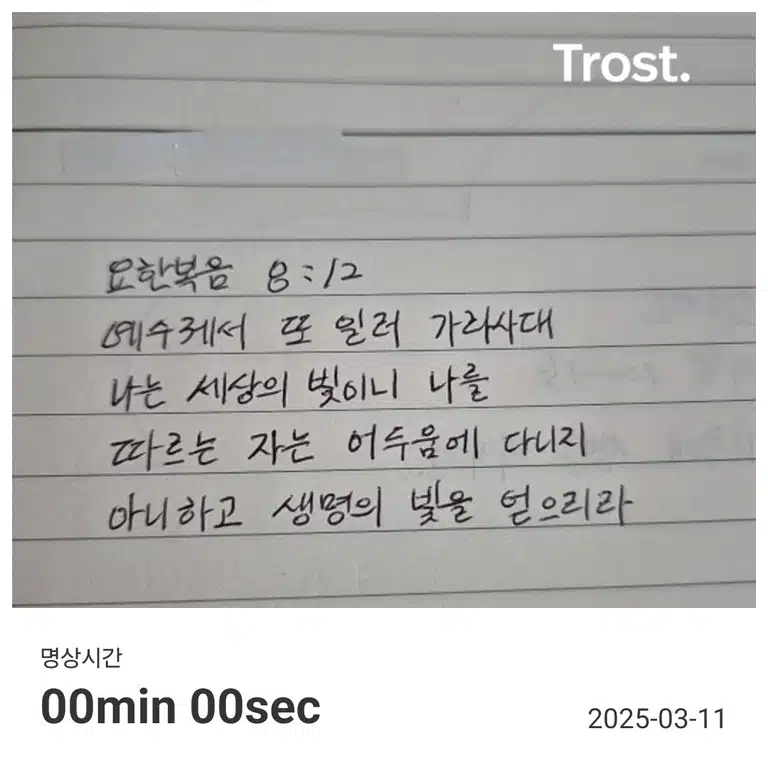 Trost.
요한복음 8:12
예수께서 또 일러 가라사대
나는 세상의 빛이니 나를
따르는 자는 어두움에 다니지
아니하고 생명의 빛을 얻으리라
명상시간
00min 00sec
2025-03-11